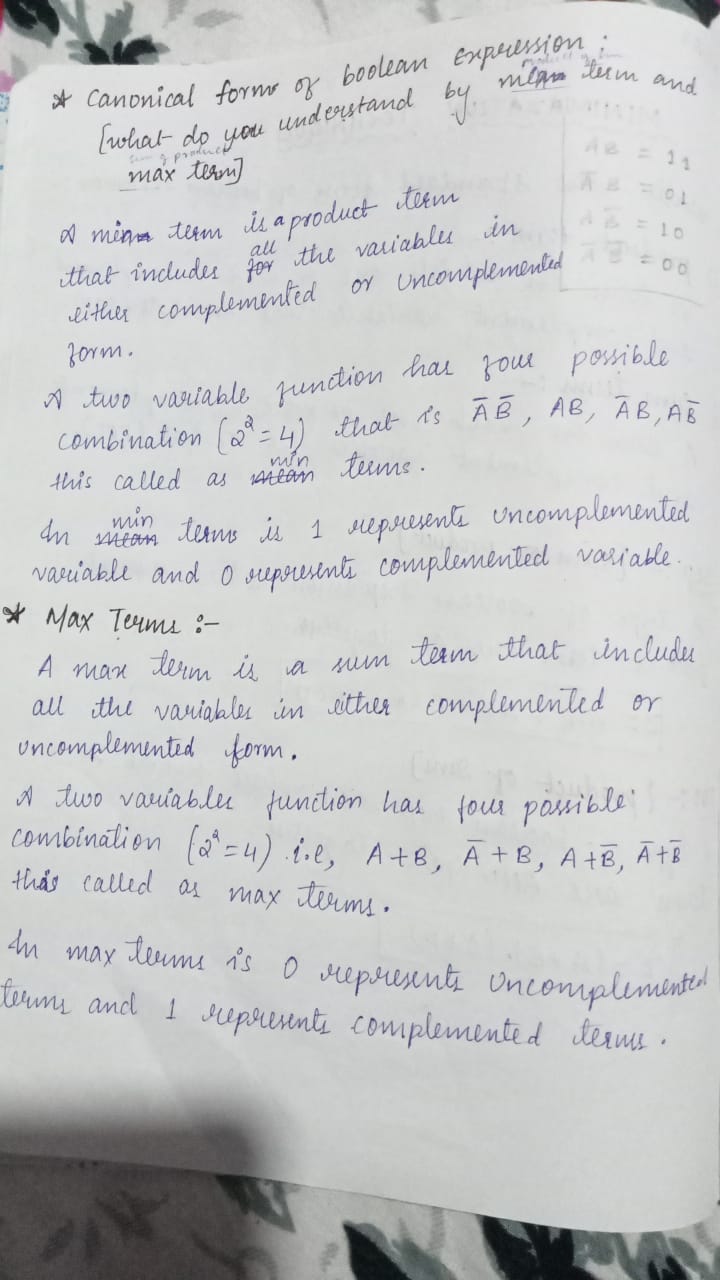 * Canonical forms of boolean Expression :
[what do you understand by min term and
max term]
sum of product
AB = 11
A̅ B = 01
A B̅ = 10
A̅ B̅ = 00
A min term is a product term
that includes all the variables in
either complemented or Uncomplemented
form.
A two variable function has four possible
combination (2² = 4) that is A̅ B̅, AB, A̅ B, A B̅
this called as min terms.
In min terms is 1 represents Uncomplemented
variable and 0 represents complemented variable.
* Max Terms :-
A max term is a sum term that includes
all the variables in either complemented or
Uncomplemented form.
A two variables function has four possible
combination (2² = 4) i.e, A + B, A̅ + B, A + B̅, A̅ + B̅
this called as max terms.
In max terms is 0 represents Uncomplemented
terms and 1 represents complemented terms.